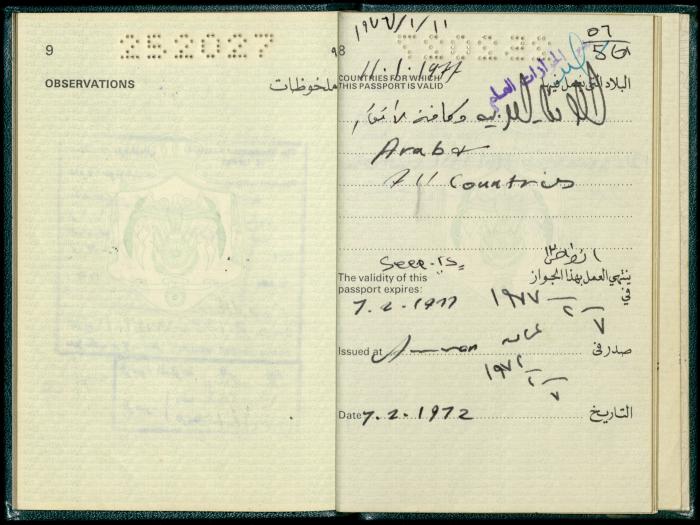 9
252027
OBSERVATIONS
ملحوظات
8
١٩٧٧/١/١١
07
COUNTRIES FOR WHICH
THIS PASSPORT IS VALID
البلاد التي يعمل فيها
العربيه وكافة الاقطار
Arab &
All Countries
The validity of this
passport expires:
ينتهي العمل بهذا الجواز
في
7.2.1977
١٩٧٧ - ٢ - ٧
Issued at Amman
صدر في
عمان
١٩٧٢ - ٢ - ٧
Date 7.2.1972
التاريخ